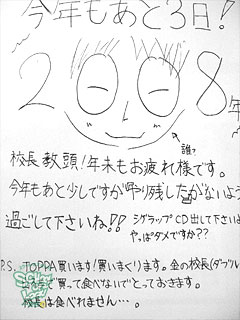 今年もあと3日!
2008年
誰?
校長教頭!年末もお疲れ様です。
今年もあと少しですがやり残しがないよう
過ごして下さいね!!
シグラップCD出して下さいよ
やっぱダメですか??
P.S. TOPPA買います!買いまくります。金の校長(ダブル
で買って食べないでとっておきます。
校長は食べれません…。